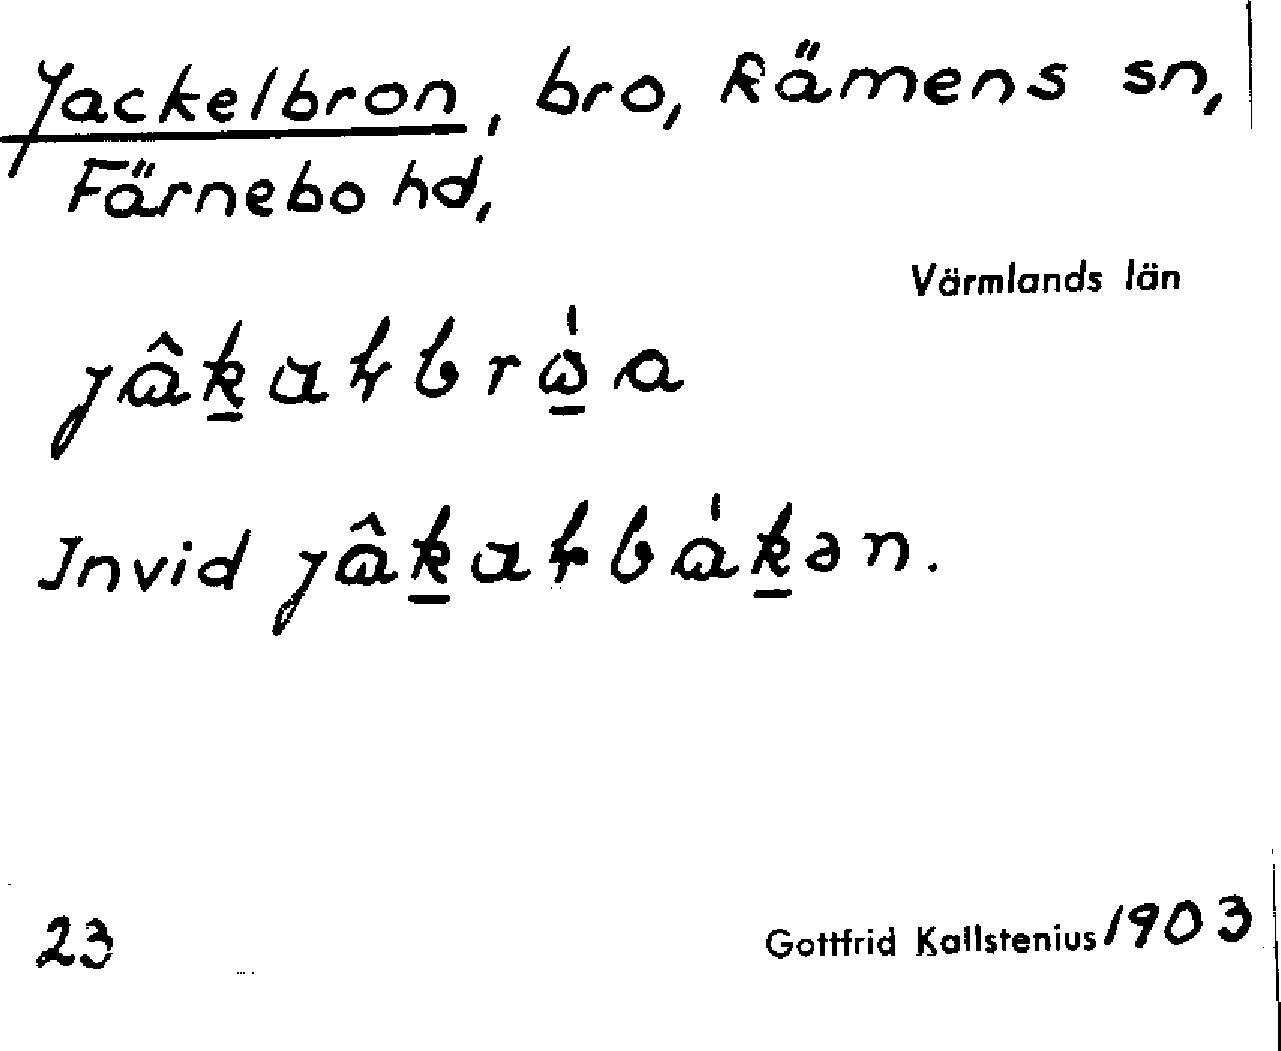 Jackelbron, bro, Rämens sn,
Färnebo hd,
Värmlands län
Invid
23
Gottfrid Kallstenius 1903